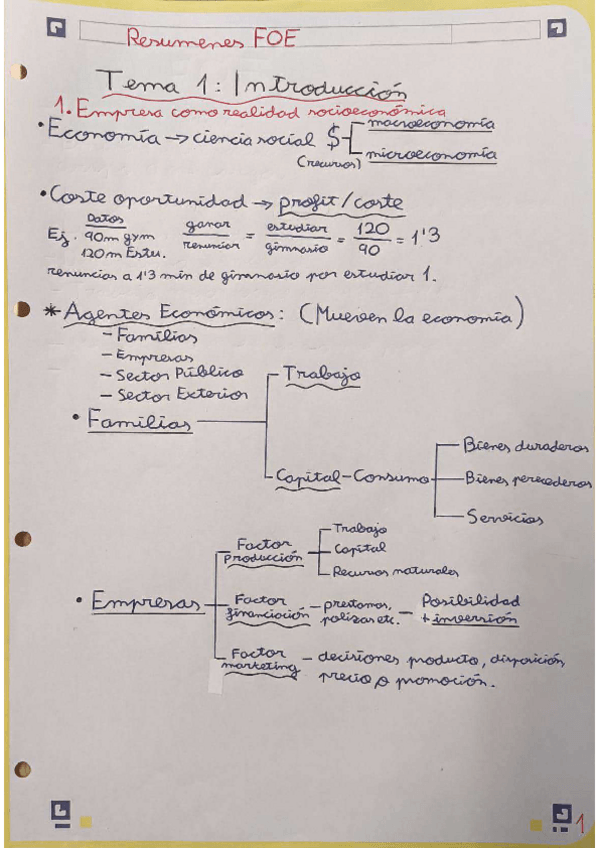 Resumenes FOE
Tema 1: Introducción
1. Empresa como realidad socioeconómica
• Economía → ciencia social $ macroeconomía
(recursos) microeconomía
• Coste oportunidad → profit/coste
Datos
Ej. 90m gym ganar/renunciar = estudiar/gimnasio = 120/90 = 1'3
120m Estu.
renuncias a 1'3 min de gimnasio por estudiar 1.
* Agentes Económicos: (Mueven la economía)
- Familias
- Empresas
- Sector Público
- Sector Exterior
• Familias
- Trabajo
- Capital - Consumo
- Bienes duraderos
- Bienes perecederos
- Servicios
• Empresas
Factor producción
- Trabajo
- Capital
- Recursos naturales
Factor financiación - prestamos, polizas etc. - Posibilidad + inversión
Factor marketing - decisiones producto, disposición, precio o promoción.
1